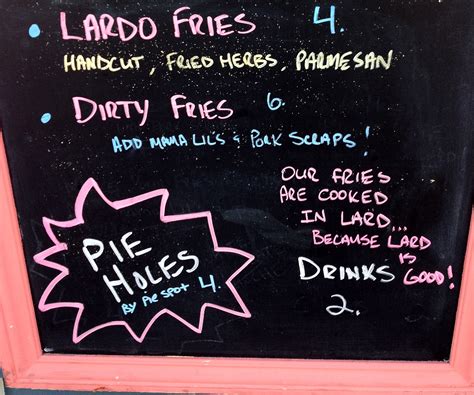 • LARDO FRIES 4.
HANDCUT, FRIED HERBS, PARMESAN
• DIRTY FRIES 6.
ADD MAMA LIL'S & PORK SCRAPS!
OUR FRIES
ARE COOKED
IN LARD...
BECAUSE LARD
IS
GOOD!
PIE
HOLES
BY PIE SPOT 4.
DRINKS
2.